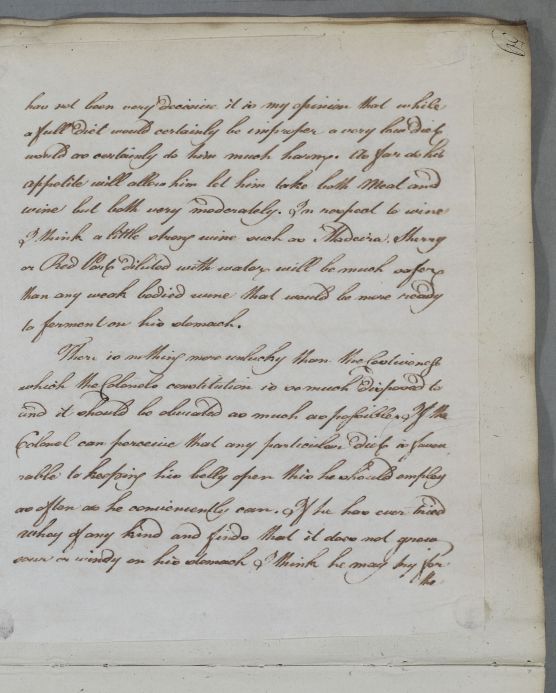 has not been very decisive it is my opinion that while
a full Diet would certainly be improper a very low diet
would as certainly do him much harm. As far as his
appetite will allow him let him take both Meat and
wine but both very moderately. In respect to wine
I think a little strong wine such as Madeira Sherry
or Red Port diluted with water will be much safer
than any weak bodied wine that would be more ready
to ferment on his stomach.
There is nothing more unlucky than the Costiveness
which the Colonels constitution is so much disposed to
and it should be obviated as much as possible. If the
Colonel can perceive that any particular diet is favou
rable to keeping his belly open this he should employ
as often as he conveniently can. If he has ever tried
Whey of any kind and finds that it does not grow
sour or windy on his stomach I think he may try for
the